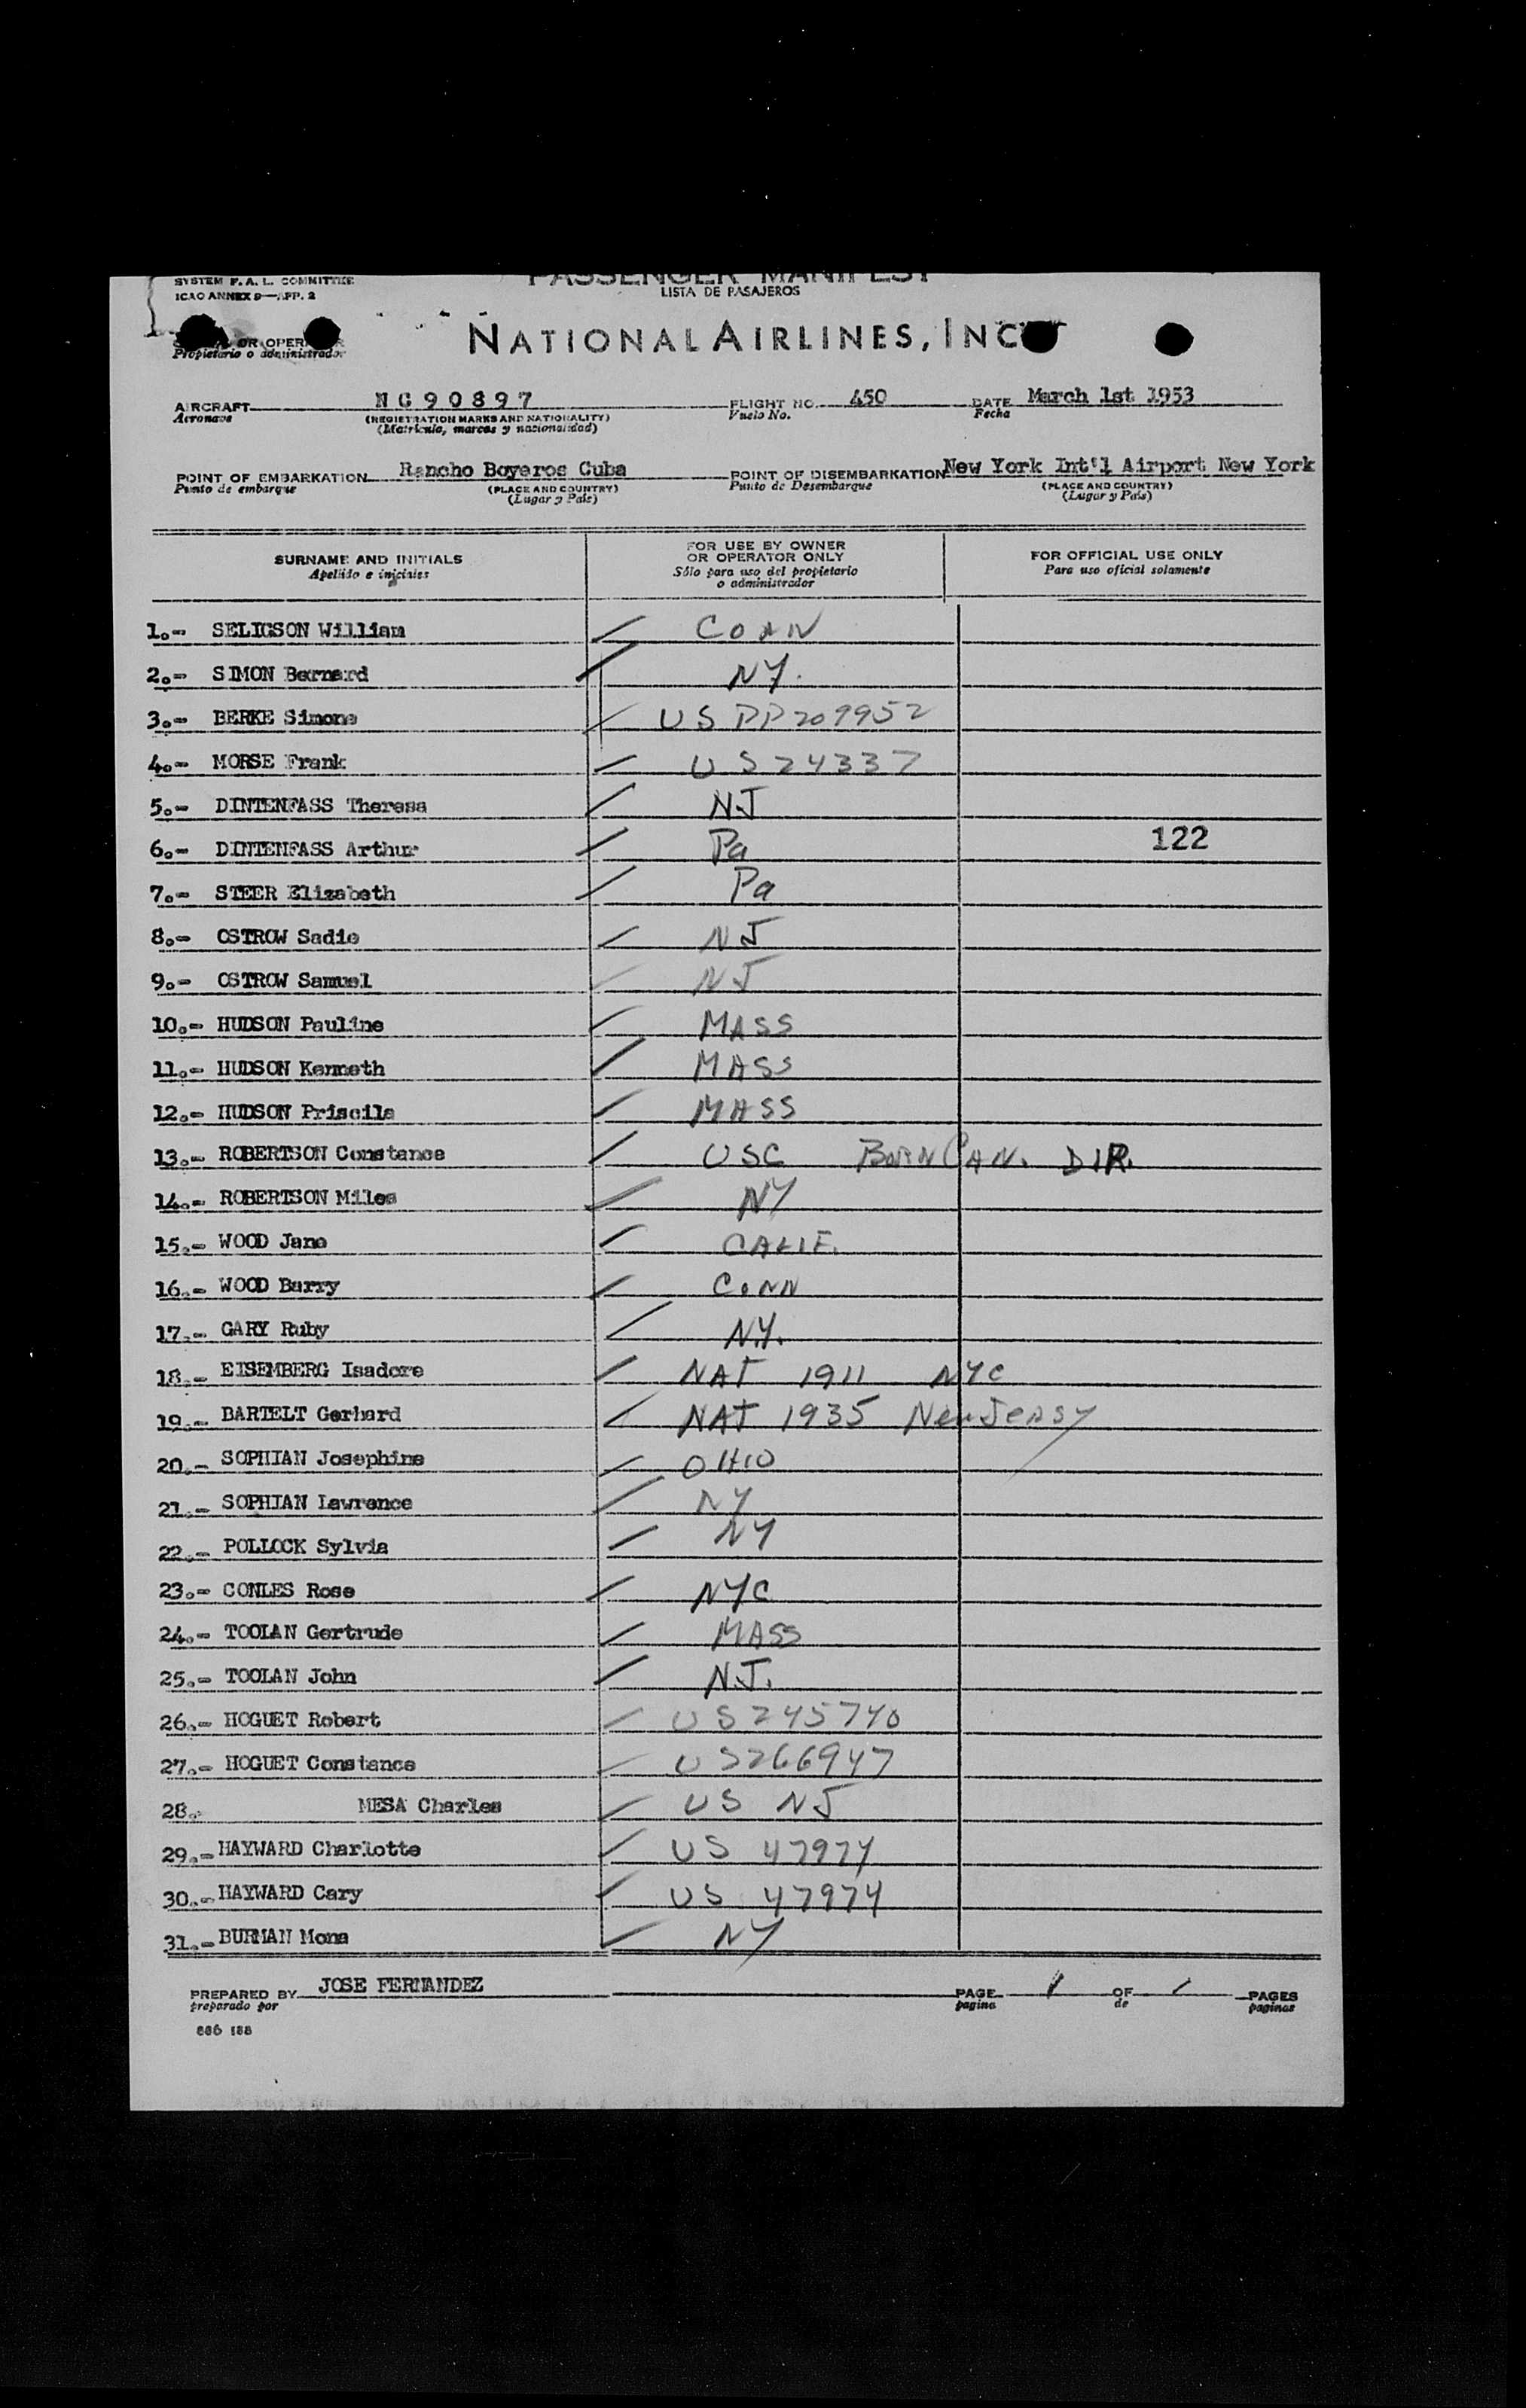 SYSTEM F. A. L. COMMITTEE
ICAO ANNEX 9—APP. 2
PASSENGER MANIFEST
LISTA DE PASAJEROS
OR OPER
Propietario o administrador
NATIONAL AIRLINES, INC
AIRCRAFT NC90897 FLIGHT NO. 450 DATE March 1st 1953
Aeronave (REGISTRATION MARKS AND NATIONALITY) Vuelo No. Fecha
(Matrícula, marcas y nacionalidad)
POINT OF EMBARKATION Rancho Boyeros Cuba POINT OF DISEMBARKATION New York Int'l Airport New York
Punto de embarque (PLACE AND COUNTRY) Punto de Desembarque (PLACE AND COUNTRY)
(Lugar y País) (Lugar y País)
SURNAME AND INITIALS FOR USE BY OWNER FOR OFFICIAL USE ONLY
Apellido e iniciales OR OPERATOR ONLY Para uso oficial solamente
Sólo para uso del propietario
o administrador
1.- SELIGSON William CONN
2.- SIMON Bernard NY.
3.- BERKE Simone US PP209952
4.- MORSE Frank US 24337
5.- DINTENFASS Theresa NJ
6.- DINTENFASS Arthur Pa 122
7.- STEER Elizabeth Pa
8.- OSTROW Sadie NJ
9.- OSTROW Samuel NJ
10.- HUDSON Pauline MASS
11.- HUDSON Kenneth MASS
12.- HUDSON Priscila MASS
13.- ROBERTSON Constance USC BORN CAN. DIR.
14.- ROBERTSON Miles NY
15.- WOOD Jane CALIF.
16.- WOOD Barry CONN
17.- GARY Ruby N.Y.
18.- EISEMBERG Isadore NAT 1911 NYC
19.- BARTELT Gerhard NAT 1935 New Jersy
20.- SOPHIAN Josephine OHIO
21.- SOPHIAN Lawrence NY
22.- POLLOCK Sylvia NY
23.- CONLES Rose NYC
24.- TOOLAN Gertrude MASS
25.- TOOLAN John N.J.
26.- HOGUET Robert US 245740
27.- HOGUET Constance US266947
28.- MESA Charles US NJ
29.- HAYWARD Charlotte US 47974
30.- HAYWARD Cary US 47974
31.- BURMAN Mona NY
PREPARED BY JOSE FERNANDEZ PAGE 1 OF 1 PAGES
preparado por pagina de paginas